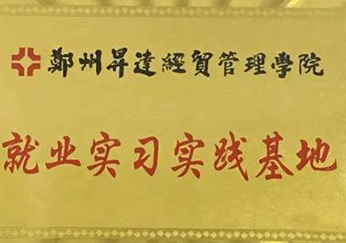 鄭州昇達經貿管理學院
就业实习实践基地